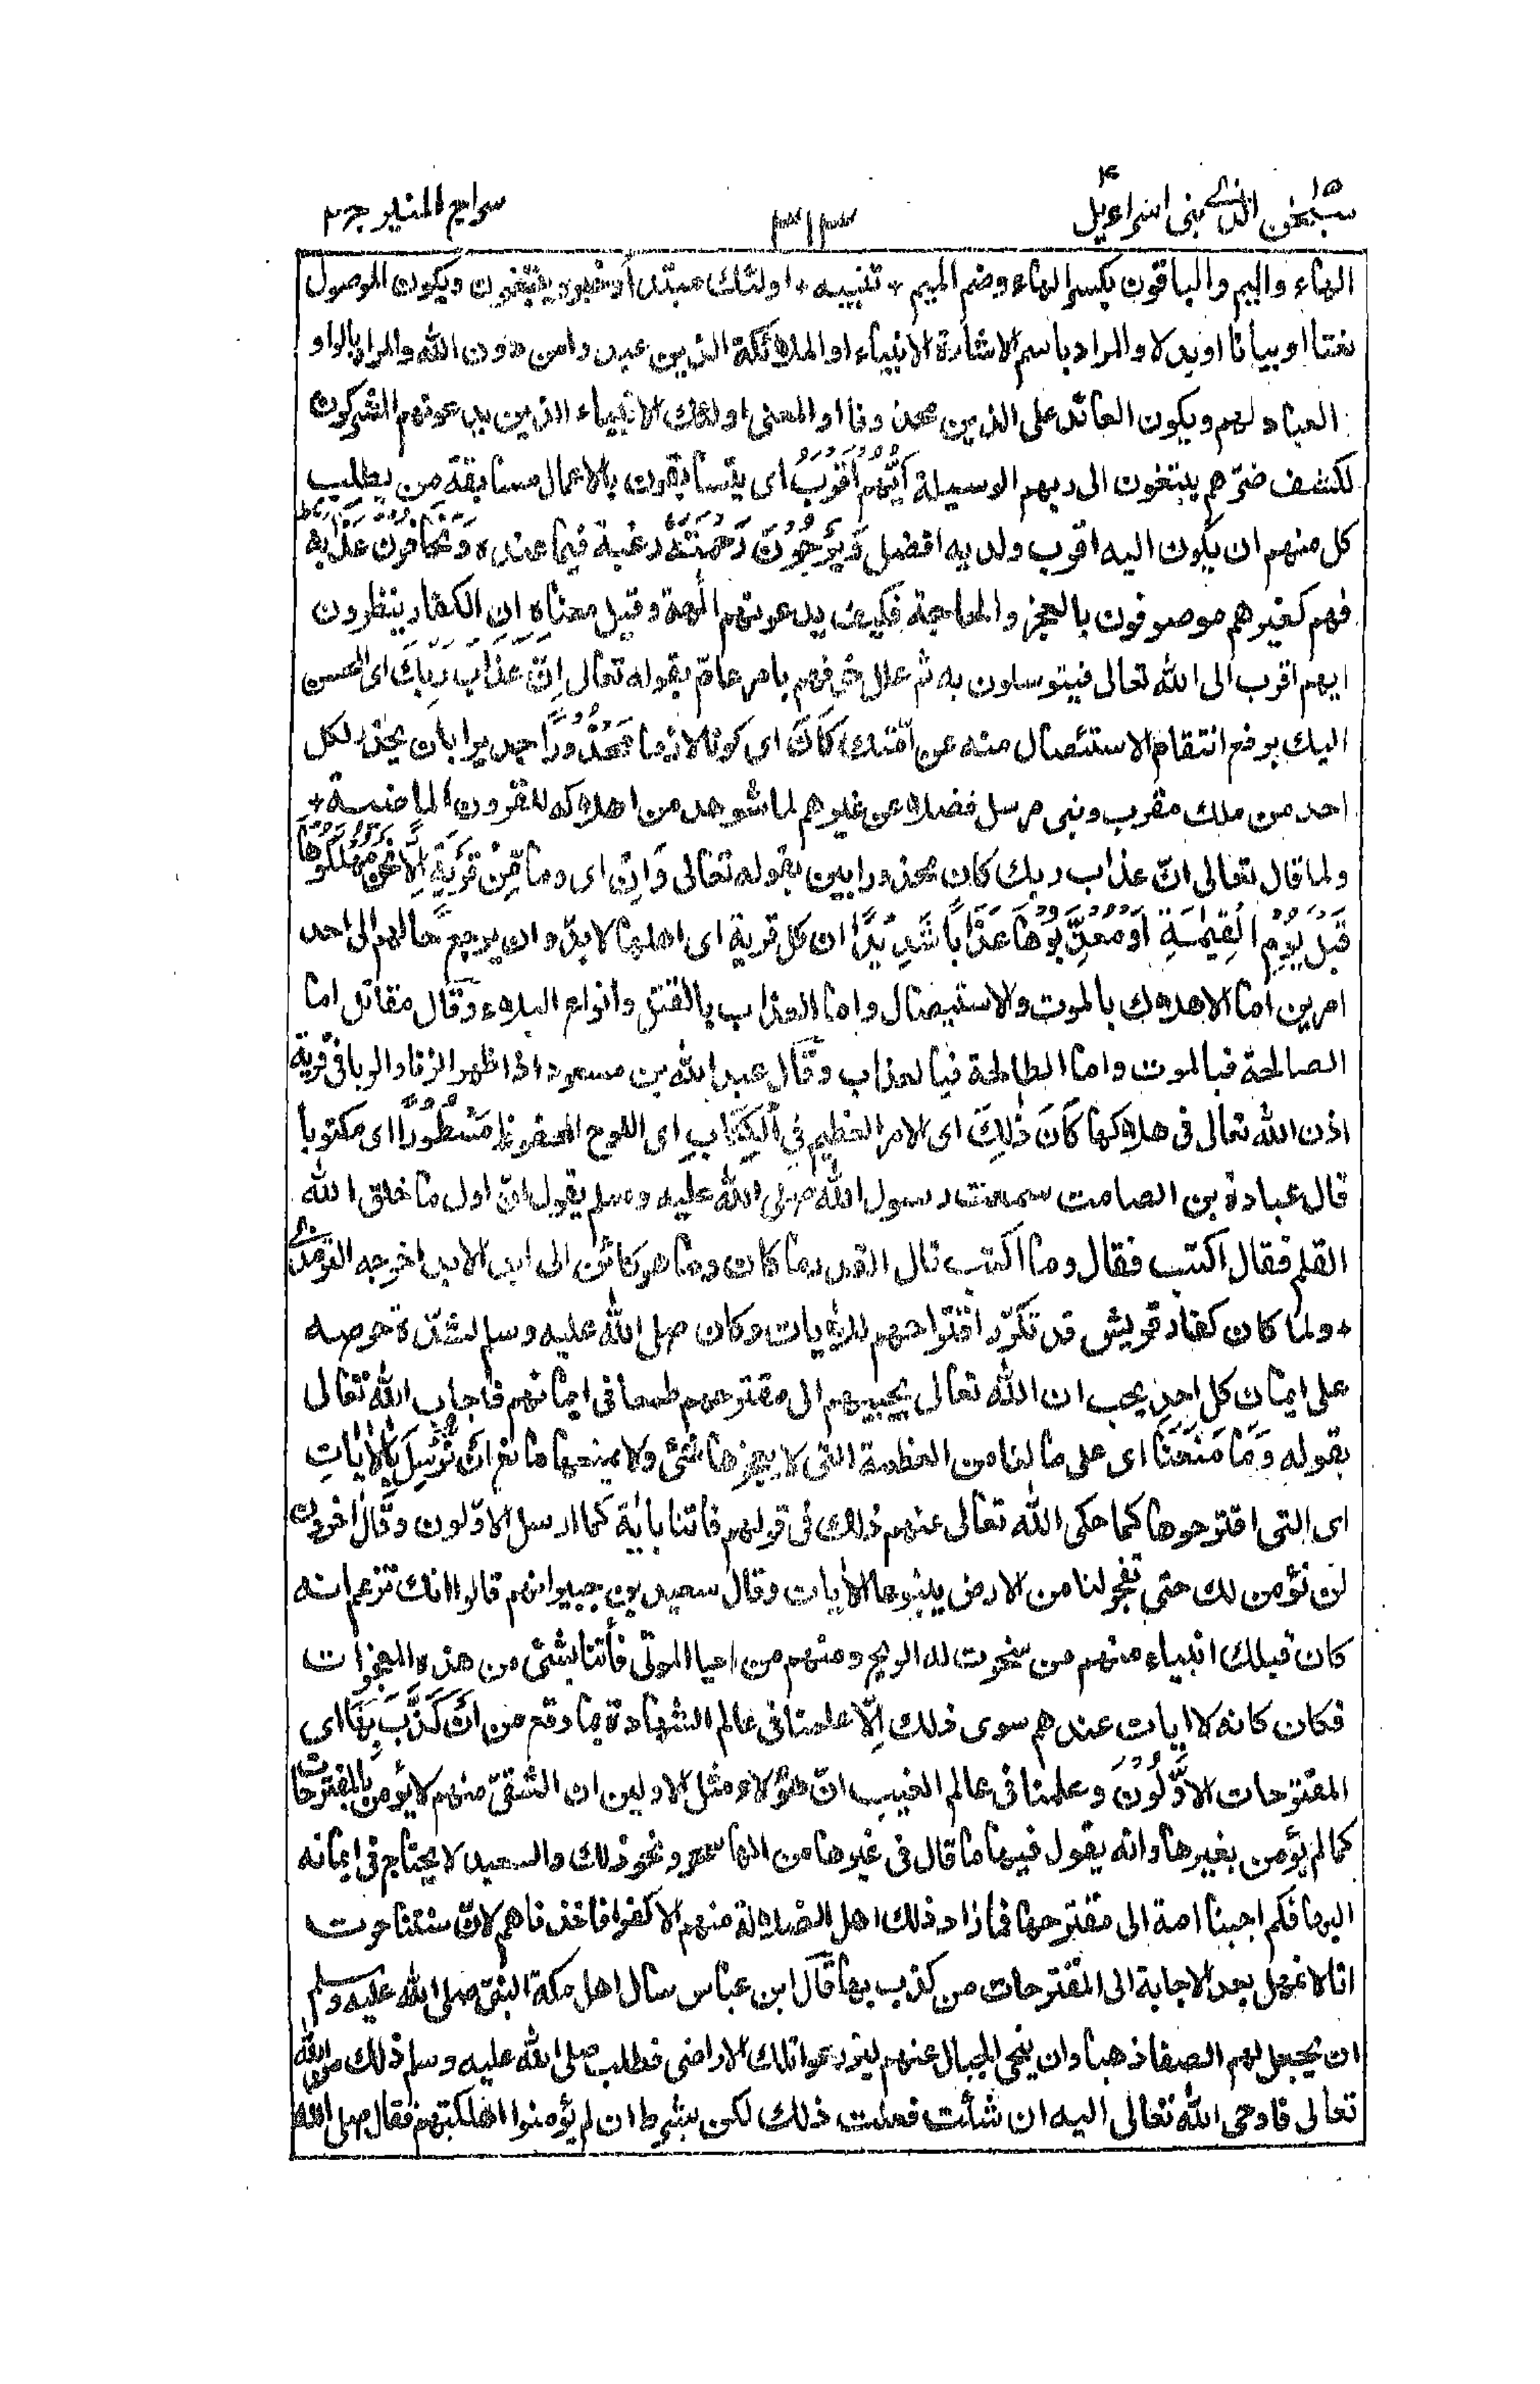 سبحٰن الذی ١٥ بنی اسراءیل ٤
٣١٣
سراج المنیر ج٢
الهاء والميم والباقون بكسر الهاء وضم الميم * تنبيه * اولئك مبتدأ وخبره يبتغون ويكون الموصول
نعتا او بيانا او بدلا والمراد باسم الاشارة الانبياء او الملائكة الذين عبدوا من دون الله والمراد بالواو
العباد لهم ويكون العائد على الذين محذوفا او المعنى اولئك الانبياء الذين يدعونهم المشركون
لكشف ضرّهم يبتغون الى ربهم الوسيلة اَيُّهُمْ اَقْرَبُ اى يتسابقون بالاعمال مسابقة من يطلب
كل منهم ان يكون اليه اقرب ولديه افضل وَيَرْجُوْنَ رَحْمَتَهٗ رغبة فيما عنده وَيَخَافُوْنَ عَذَابَهٗ
فهم كغيرهم موصوفون بالعجز والحاجة فكيف يدعونهم اٰلهة وقيل معناه ان الكفار ينظرون
ايهم اقرب الى الله تعالى فيتوسلون به ثم علل خوفهم بامر عامّ بقوله تعالى اِنَّ عَذَابَ رَبِّكَ اى المحسن
اليك برفع انتقام الاستئصال منه عن امّتك كَانَ اى كونا لازما مَحْذُوْرًا جديرا بان يحذر لكل
احد من ملك مقرب ونبى مرسل فضلا عن غيرهم لما شوهد من اهلاكه للقرون الماضية *
ولما قال تعالى انّ عذاب ربك كان محذورا بين بقوله تعالى وَاِنْ اى وما مِّنْ قَرْيَةٍ اِلَّا نَحْنُ مُهْلِكُوْهَا
قَبْلَ يَوْمِ الْقِيٰمَةِ اَوْ مُعَذِّبُوْهَا عَذَابًا شَدِيْدًا ان كل قرية اى اهلها لا بدّ وان يرجع حالهم الى احد
امرين امّا الاهلاك بالموت والاستيصال واما العذاب بالقتل وانواع البلاء وقال مقاتل اما
الصالحة فبالموت واما الطالحة فبالعذاب وقال عبد الله بن مسعود اذا ظهر الزنا والربا فى قرية
اذن الله تعالى فى هلاكها كَانَ ذٰلِكَ اى الامر العظيم فِي الْكِتَابِ اى اللوح المحفوظ مَسْطُوْرًا اى مكتوبا
قال عبادة بن الصامت سمعت رسول الله صلى الله عليه وسلم يقول انّ اول ما خلق الله
القلم فقال اكتب فقال وما اكتب قال القدر ما كان وما هو كائن الى ابد الابد اخرجه الترمذى
* ولما كان كفار قريش قد تكرّر اقتراحهم للاٰيات وكان صلى الله عليه وسلم لشدّة حرصه
على ايمان كل احد يحب ان الله تعالى يجيبهم الى مقترحهم طمعا فى ايمانهم فاجاب الله تعالى
بقوله وَمَا مَنَعَنَا اى على ما لنا من العظمة التى لا يعجزها شئ ولا يمنعها مانع اَنْ نُّرْسِلَ بِالْاٰيٰتِ
اى التى اقترحوها كما حكى الله تعالى عنهم ذلك فى قولهم فاتنا باٰية كما ارسل الاوّلون وقال اٰخرون
لن نؤمن لك حتى تفجر لنا من الارض ينبوعا الاٰيات وقال سعيد بن جبير انهم قالوا انك تزعم انه
كان قبلك انبياء منهم من سخرت له الريح ومنهم من احيا الموتى فأتنا بشئ من هذه المعجزات
فكان كانه لا ايات عندهم سوى ذلك اِلَّا علمنا فى عالم الشهادة بما وقع من اَنْ كَذَّبَ بِهَا اى
المقترحات الْاَوَّلُوْنَ وعلمنا فى عالم الغيب انّ هؤلاء مثل الاولين ان الشقىّ منهم لا يؤمن بالمقترحات
كما لم يؤمن بغيرها وانه يقول فيها ما قال فى غيرها من انها سحر ونحو ذلك والسعيد لا يحتاج فى ايمانه
اليها فكم اجبنا امة الى مقترحها فما زاد ذلك اهل الضلالة منهم الا كفرا فاخذناهم لانّ سنتنا جرت
انا لا نمهل بعد الاجابة الى المقترحات من كذب بها قال ابن عباس سال اهل مكة النبىّ صلى الله عليه وسلم
ان يجعل لهم الصفا ذهبا وان ينحى الجبال عنهم ليزرعوا تلك الاراضى فطلب صلى الله عليه وسلم ذلك من الله
تعالى فاوحى الله تعالى اليه ان شئت فعلت ذلك لكن بشرط ان لم يؤمنوا اهلكتهم فقال صلى الله